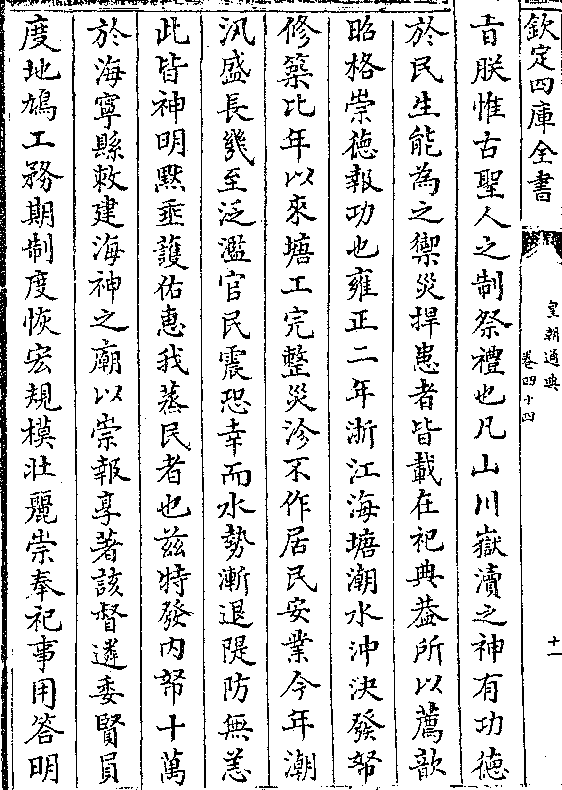 欽定四庫全書
皇朝通典
卷四十四
十一
旨朕惟古聖人之制祭禮也凡山川嶽瀆之神有功德
於民生能為之禦災捍患者皆載在祀典葢所以薦歆
昭格崇德報功也雍正二年浙江海塘潮水沖決發帑
修築比年以來塘工完整災沴不作居民安業今年潮
汛盛長幾至泛濫官民震恐幸而水勢漸退隄防無恙
此皆神明黙垂護佑惠我蒸民者也兹特發内帑十萬
於海寧縣敕建海神之廟以崇報享著該督遴委賢員
度地鳩工務期制度恢宏規模壯麗崇奉祀事用答明